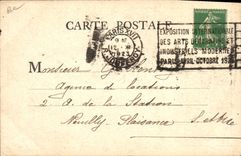 CARTE POSTALE
PARIS XVII
EXPOSITION INTERNATIONALE
DES ARTS DÉCORATIFS
INDUSTRIELS MODERNES
PARIS AVRIL-OCTOBRE 1925
Monsieur
Agence de locations
2 de la Station
Neuilly Plaisance S et O